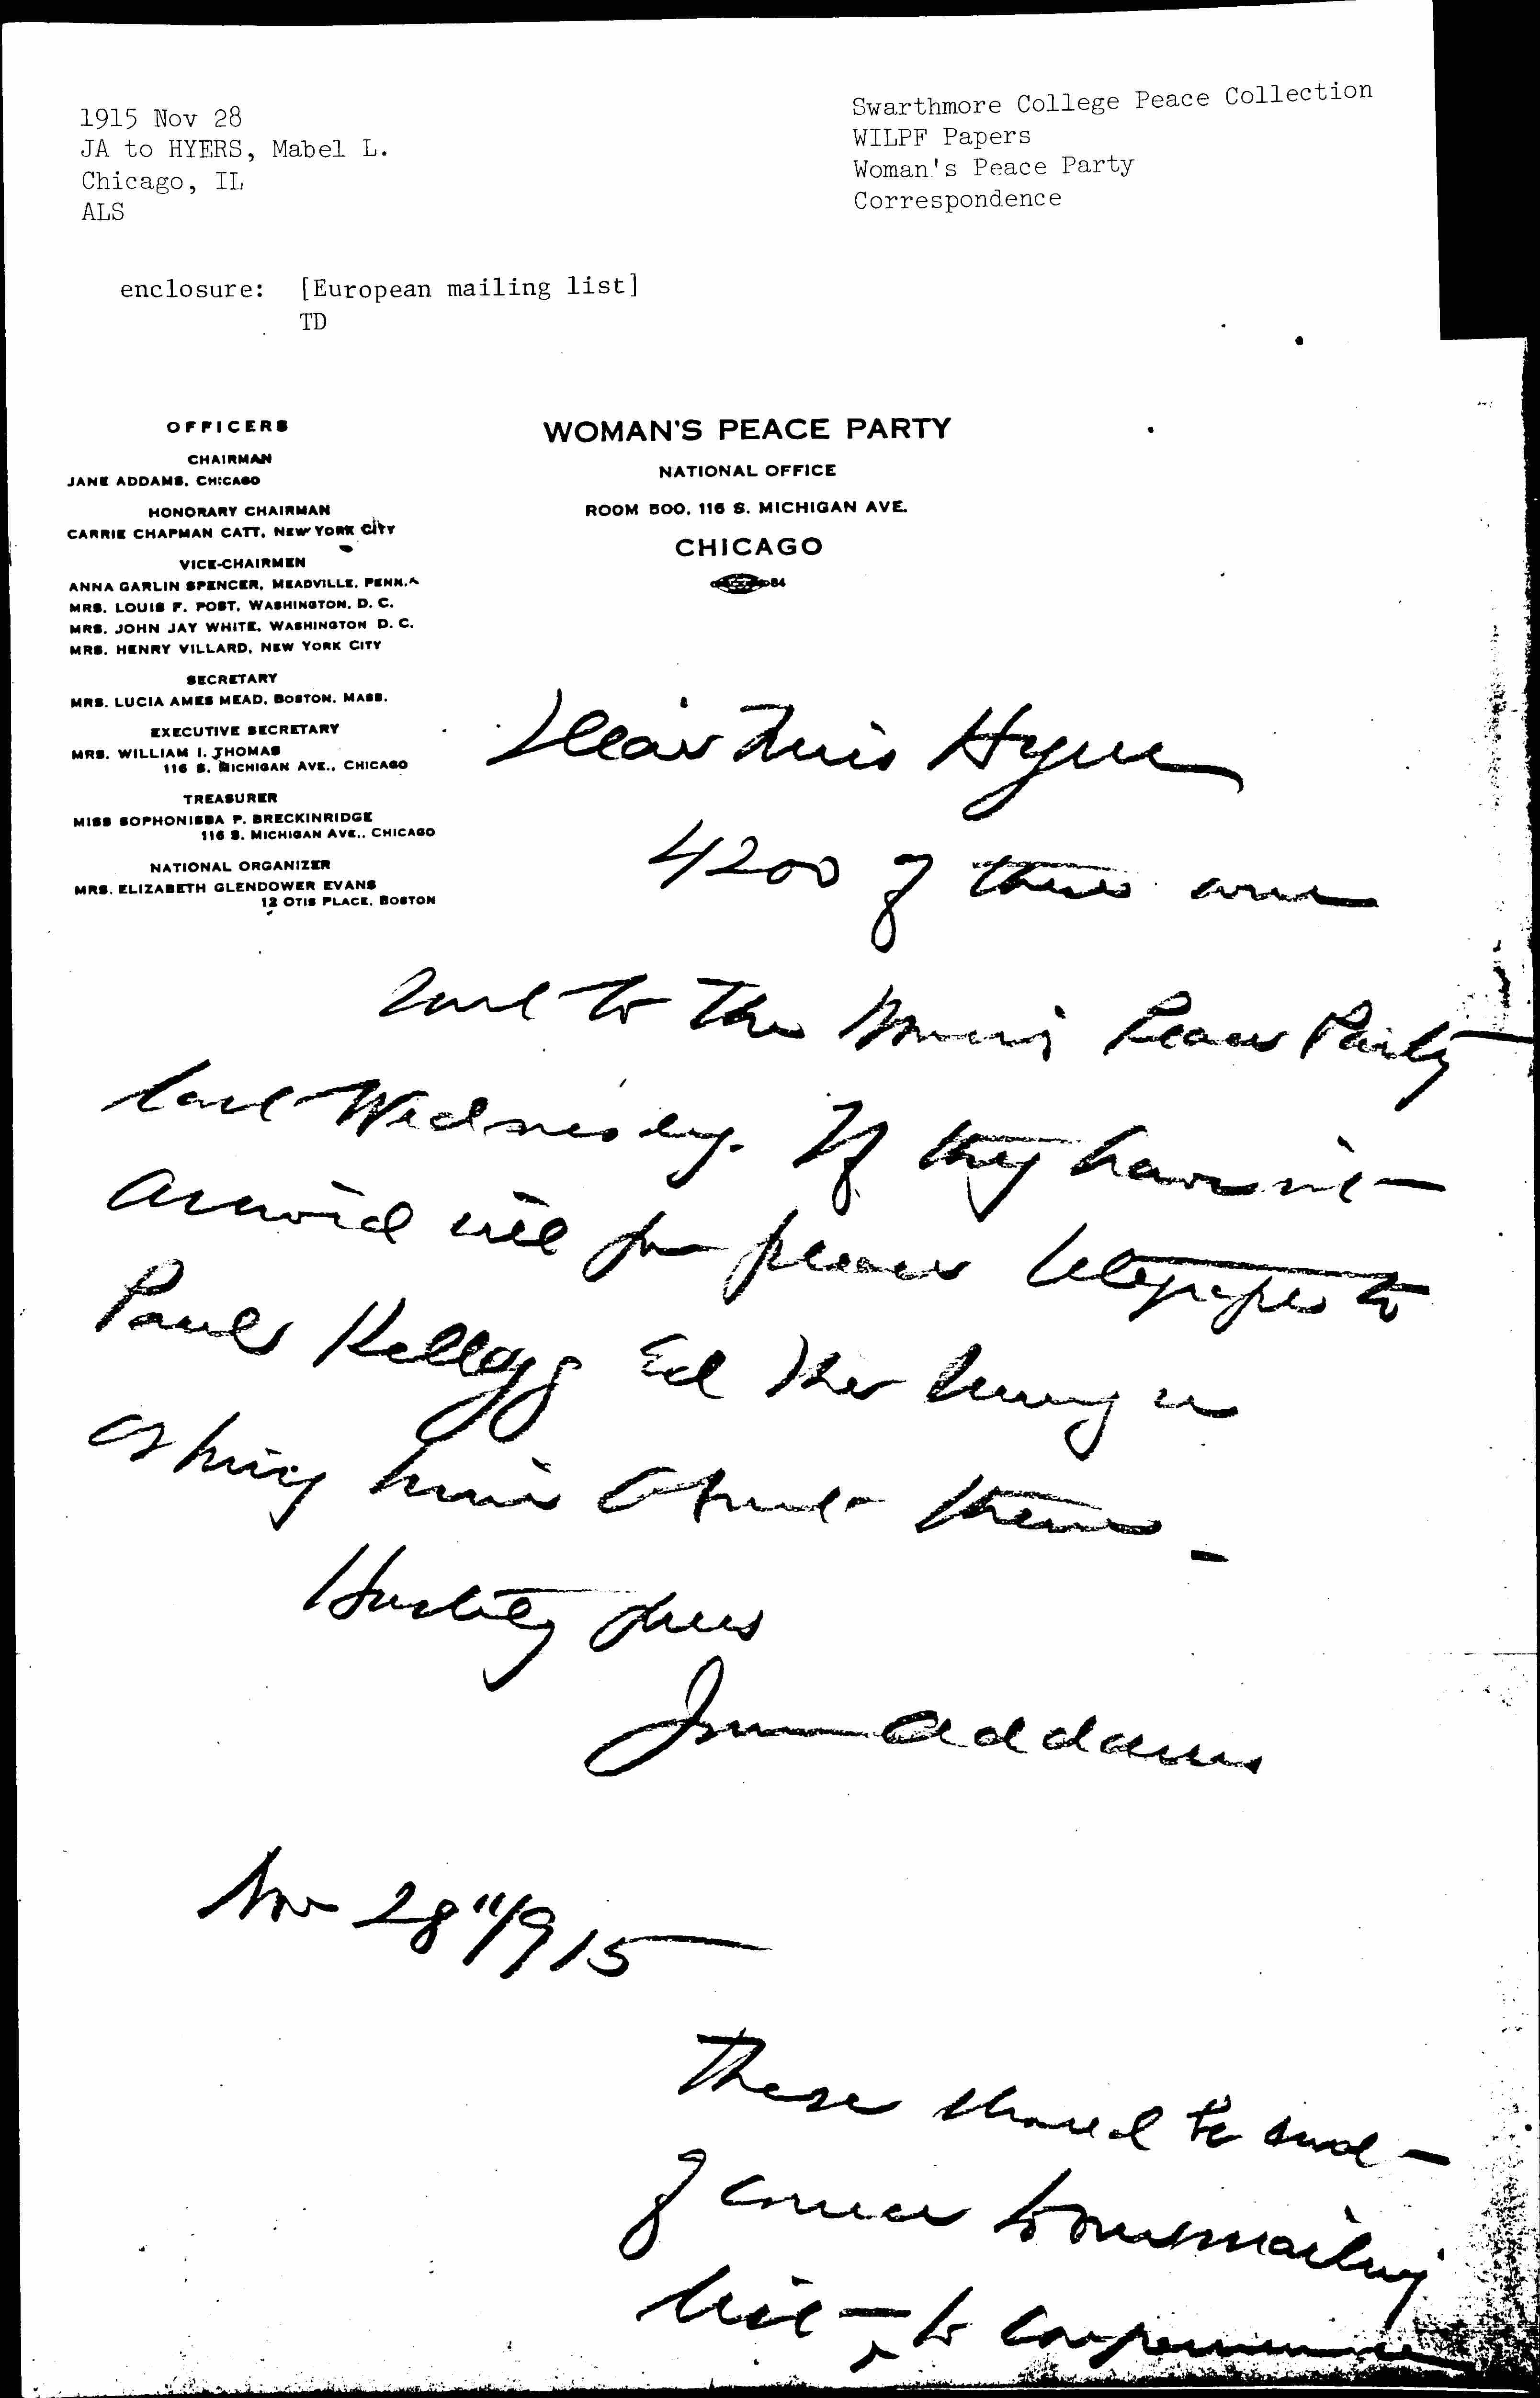 1915 Nov 28
JA to HYERS, Mabel L.
Chicago, IL
ALS
Swarthmore College Peace Collection
WILPF Papers
Woman's Peace Party
Correspondence
enclosure: [European mailing list]
TD
OFFICERS
CHAIRMAN
JANE ADDAMS, CHICAGO
HONORARY CHAIRMAN
CARRIE CHAPMAN CATT, NEW YORK CITY
VICE-CHAIRMEN
ANNA GARLIN SPENCER, MEADVILLE, PENN.
MRS. LOUIS F. POST, WASHINGTON, D. C.
MRS. JOHN JAY WHITE, WASHINGTON D. C.
MRS. HENRY VILLARD, NEW YORK CITY
SECRETARY
MRS. LUCIA AMES MEAD, BOSTON, MASS.
EXECUTIVE SECRETARY
MRS. WILLIAM I. THOMAS
116 S. MICHIGAN AVE., CHICAGO
TREASURER
MISS SOPHONISBA P. BRECKINRIDGE
116 S. MICHIGAN AVE., CHICAGO
NATIONAL ORGANIZER
MRS. ELIZABETH GLENDOWER EVANS
12 OTIS PLACE, BOSTON
WOMAN'S PEACE PARTY
NATIONAL OFFICE
ROOM 500, 116 S. MICHIGAN AVE.
CHICAGO
84
Dear Miss Hyers
4200 of these were
sent to the Woman's Peace Party
last Wednesday. If they haven't
arrived will you please telegraph to
Paul Kellogg Ed The Survey
asking him about them -
Hastily yours
Jane Addams
Nov 28" 1915
These should be sent
of course to our mailing
list - to